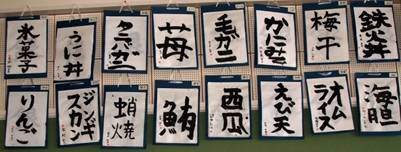 氷菓子
うに丼
タラバガニ
苺
毛ガニ
梅干
鉄火丼
りんご
ジンギ
スカン
蛸焼
鮪
西瓜
えび天
オム
ライス
海胆